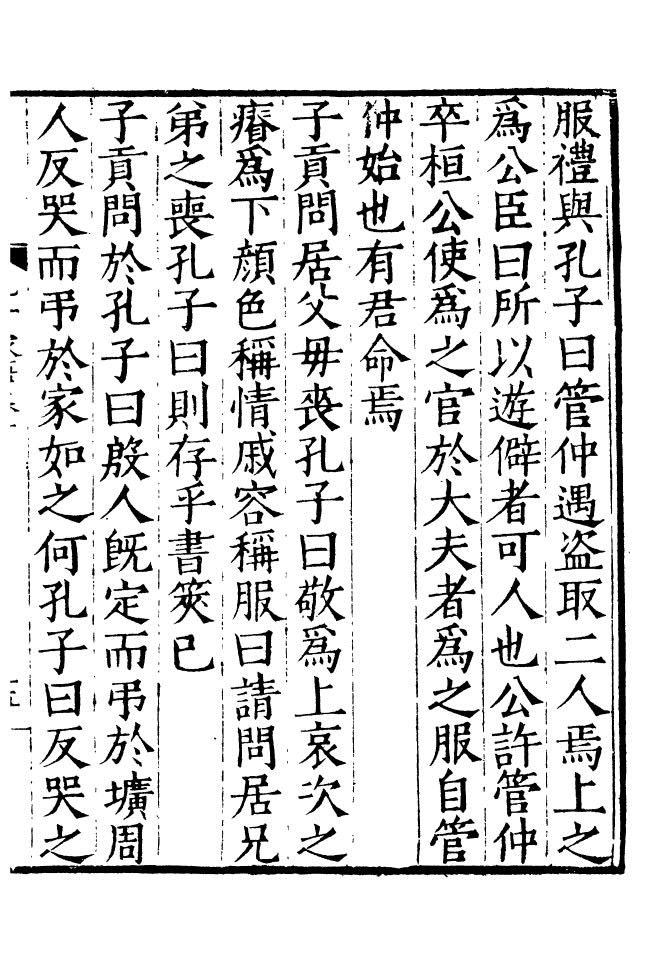 服禮與孔子曰管仲遇盗取二人焉上之
爲公臣曰所以遊僻者可人也公許管仲
卒桓公使爲之官於大夫者爲之服自管
仲始也有君命焉
子貢問居父毋喪孔子曰敬爲上哀次之
瘠爲下顔色稱情戚容稱服曰請問居兄
弟之喪孔子曰則存乎書筴已
子貢問於孔子曰殷人旣定而弔於壙周
人反哭而弔於家如之何孔子曰反哭之